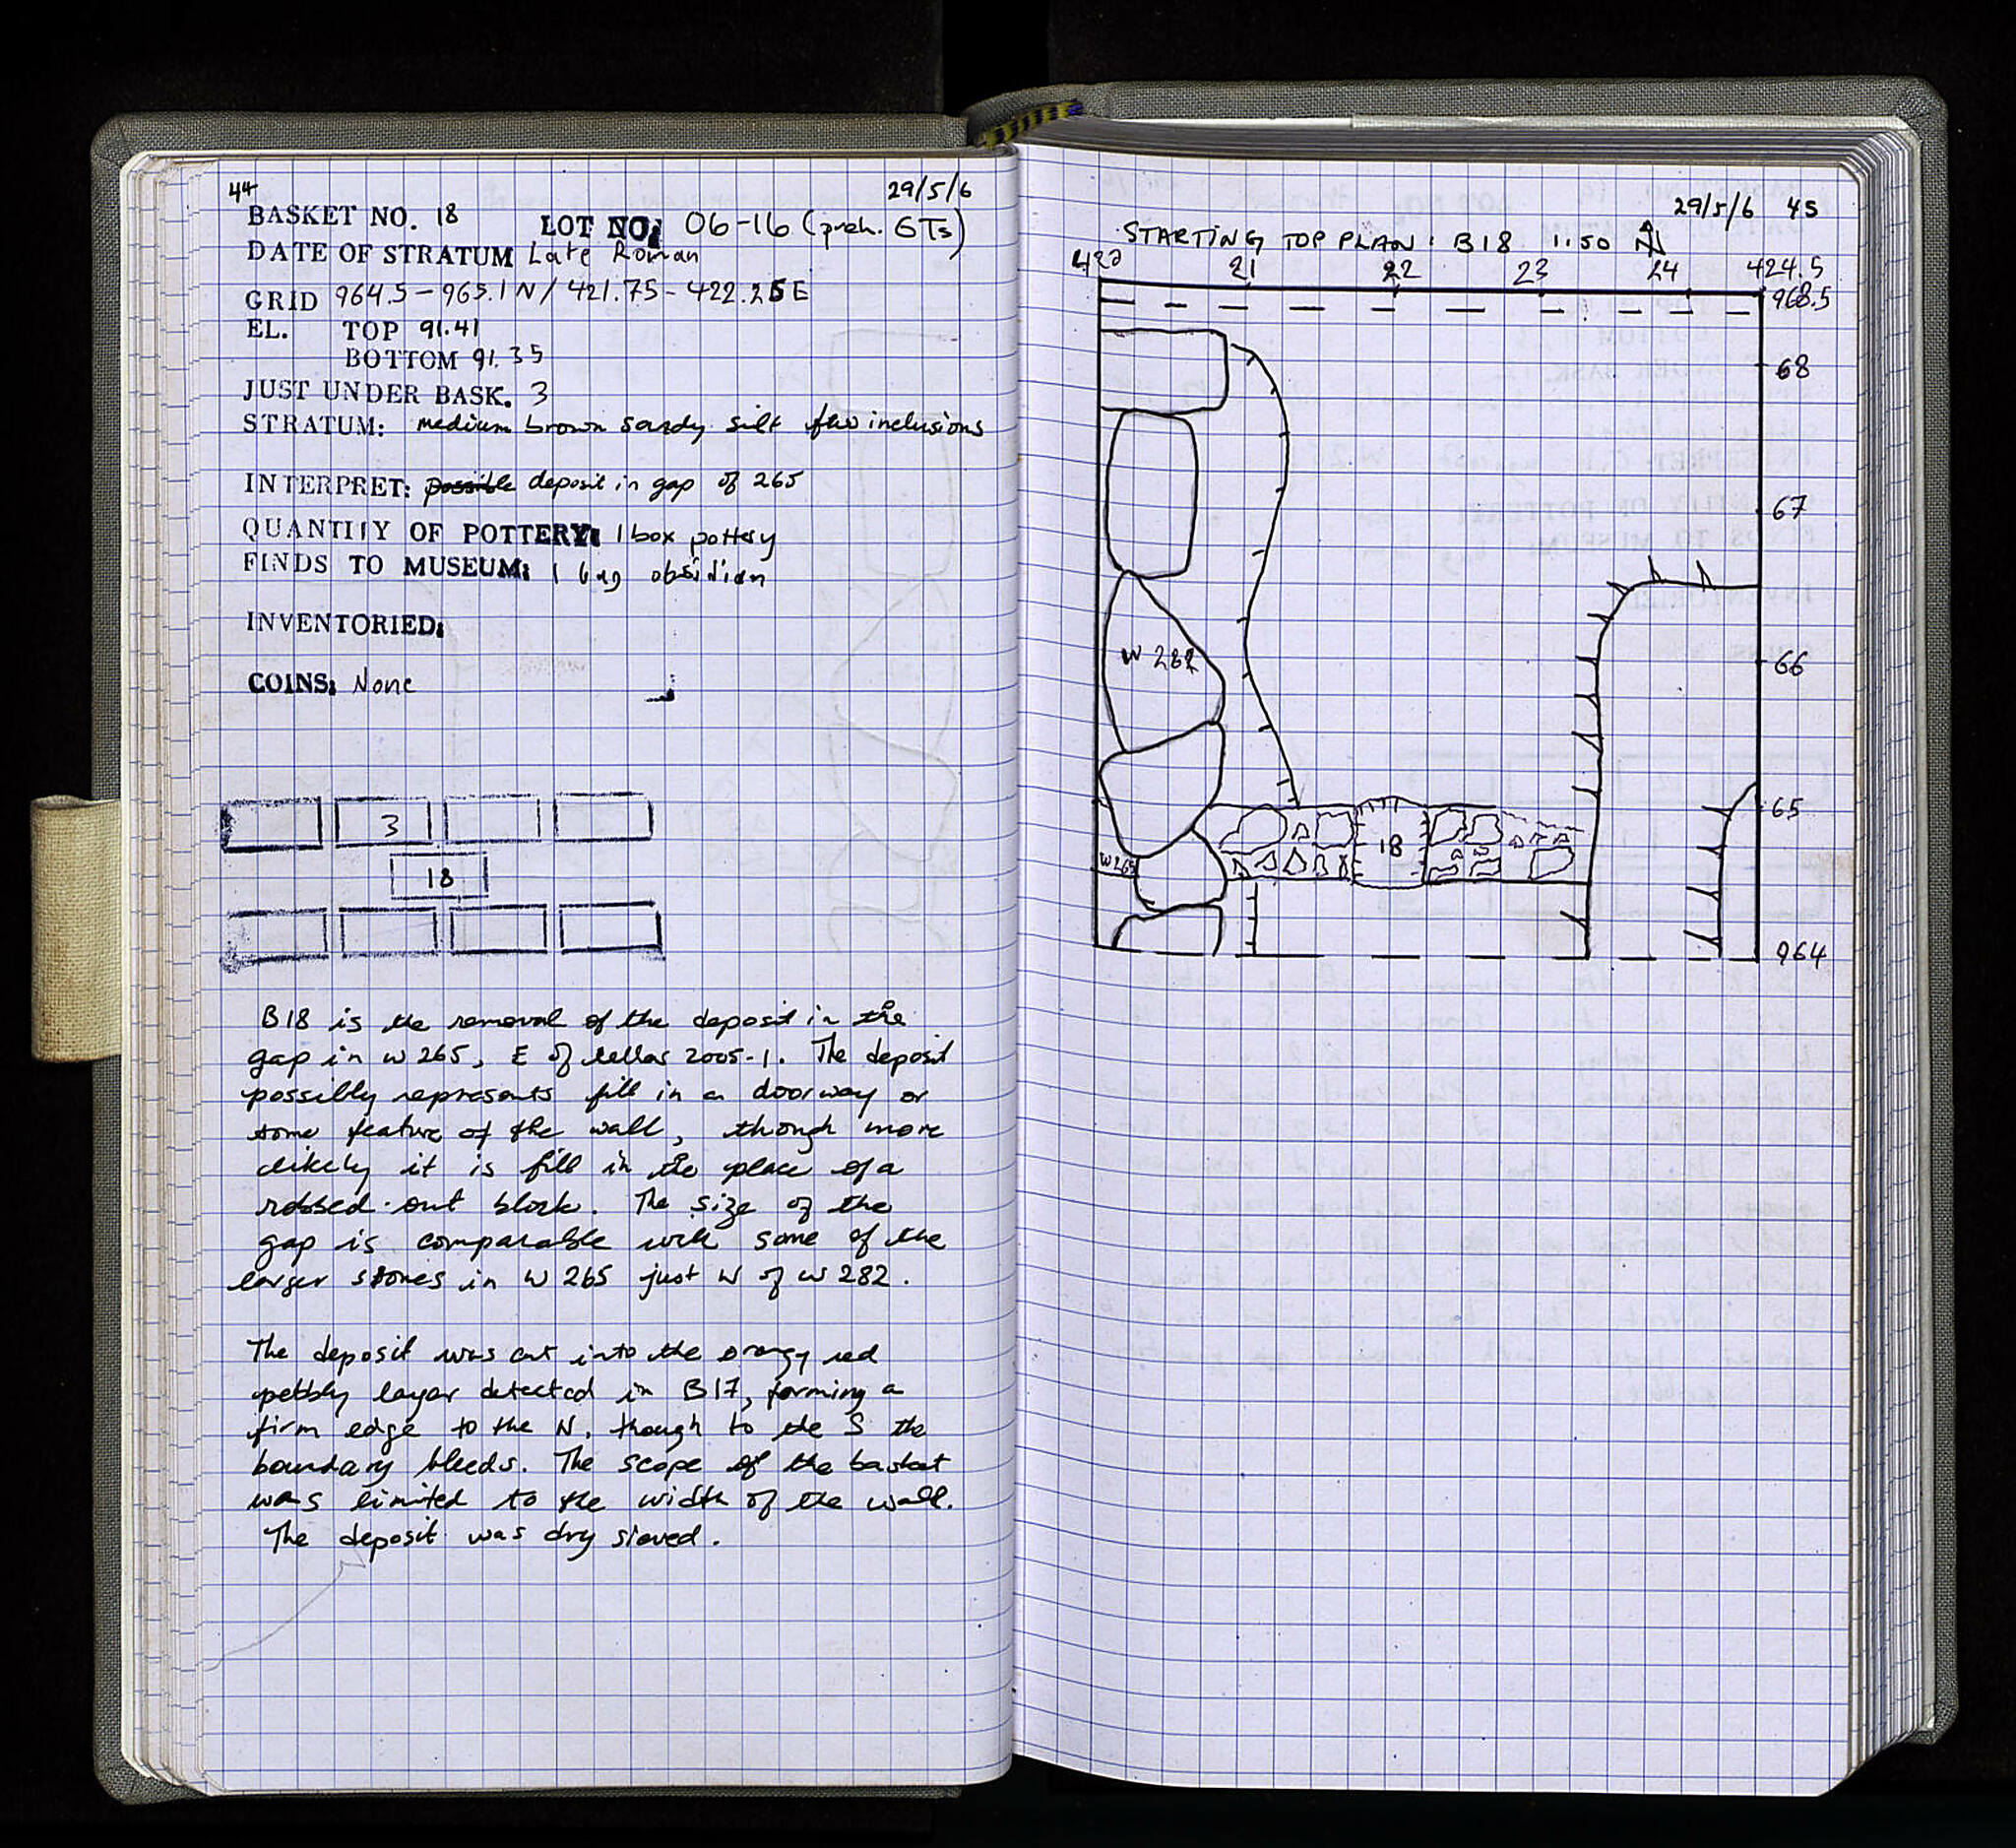 44
29/5/6
BASKET NO. 18 LOT NO: 06-16 (preh. GTs)
DATE OF STRATUM Late Roman
GRID 964.5-965.1N/421.75-422.25E
EL. TOP 91.41
BOTTOM 91.35
JUST UNDER BASK. 3
STRATUM: medium brown sandy silt few inclusions
INTERPRET: possible deposit in gap of 265
QUANTITY OF POTTERY: 1 box pottery
FINDS TO MUSEUM: 1 bag obsidian
INVENTORIED:
COINS: None
3
18
B18 is the removal of the deposit in the
gap in W265, E of cellar 2005-1. The deposit
possibly represents fill in a doorway or
some feature of the wall, though more
likely it is fill in the place of a
robbed-out block. The size of the
gap is comparable with some of the
larger stones in W265 just W of W282.
The deposit was cut into the orangy red
pebbly layer detected in B17, forming a
firm edge to the N, though to the S the
boundary bleeds. The scope of the basket
was limited to the width of the wall.
The deposit was dry sieved.
29/5/6 45
STARTING TOP PLAN: B18 1:50 N
420 21 22 23 24 424.5
968.5
68
67
66
W 282
65
18
W265
964